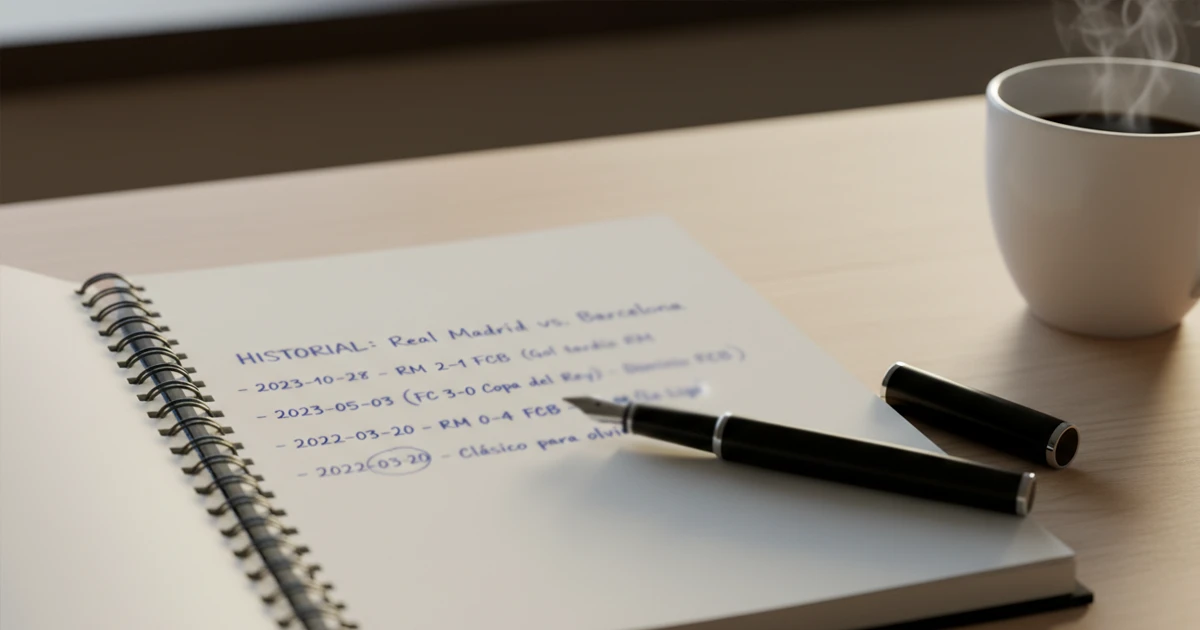 HISTORIAL: Real Madrid vs. Barcelona
- 2023-10-28 - RM 2-1 FCB (Gol tardío RM
- 2023-05-03 (FC 3-0 Copa del Rey) - Dominio FCB)
- 2022-03-20 - RM 0-4 FCB -
- 2022-03-20 - Clásico para